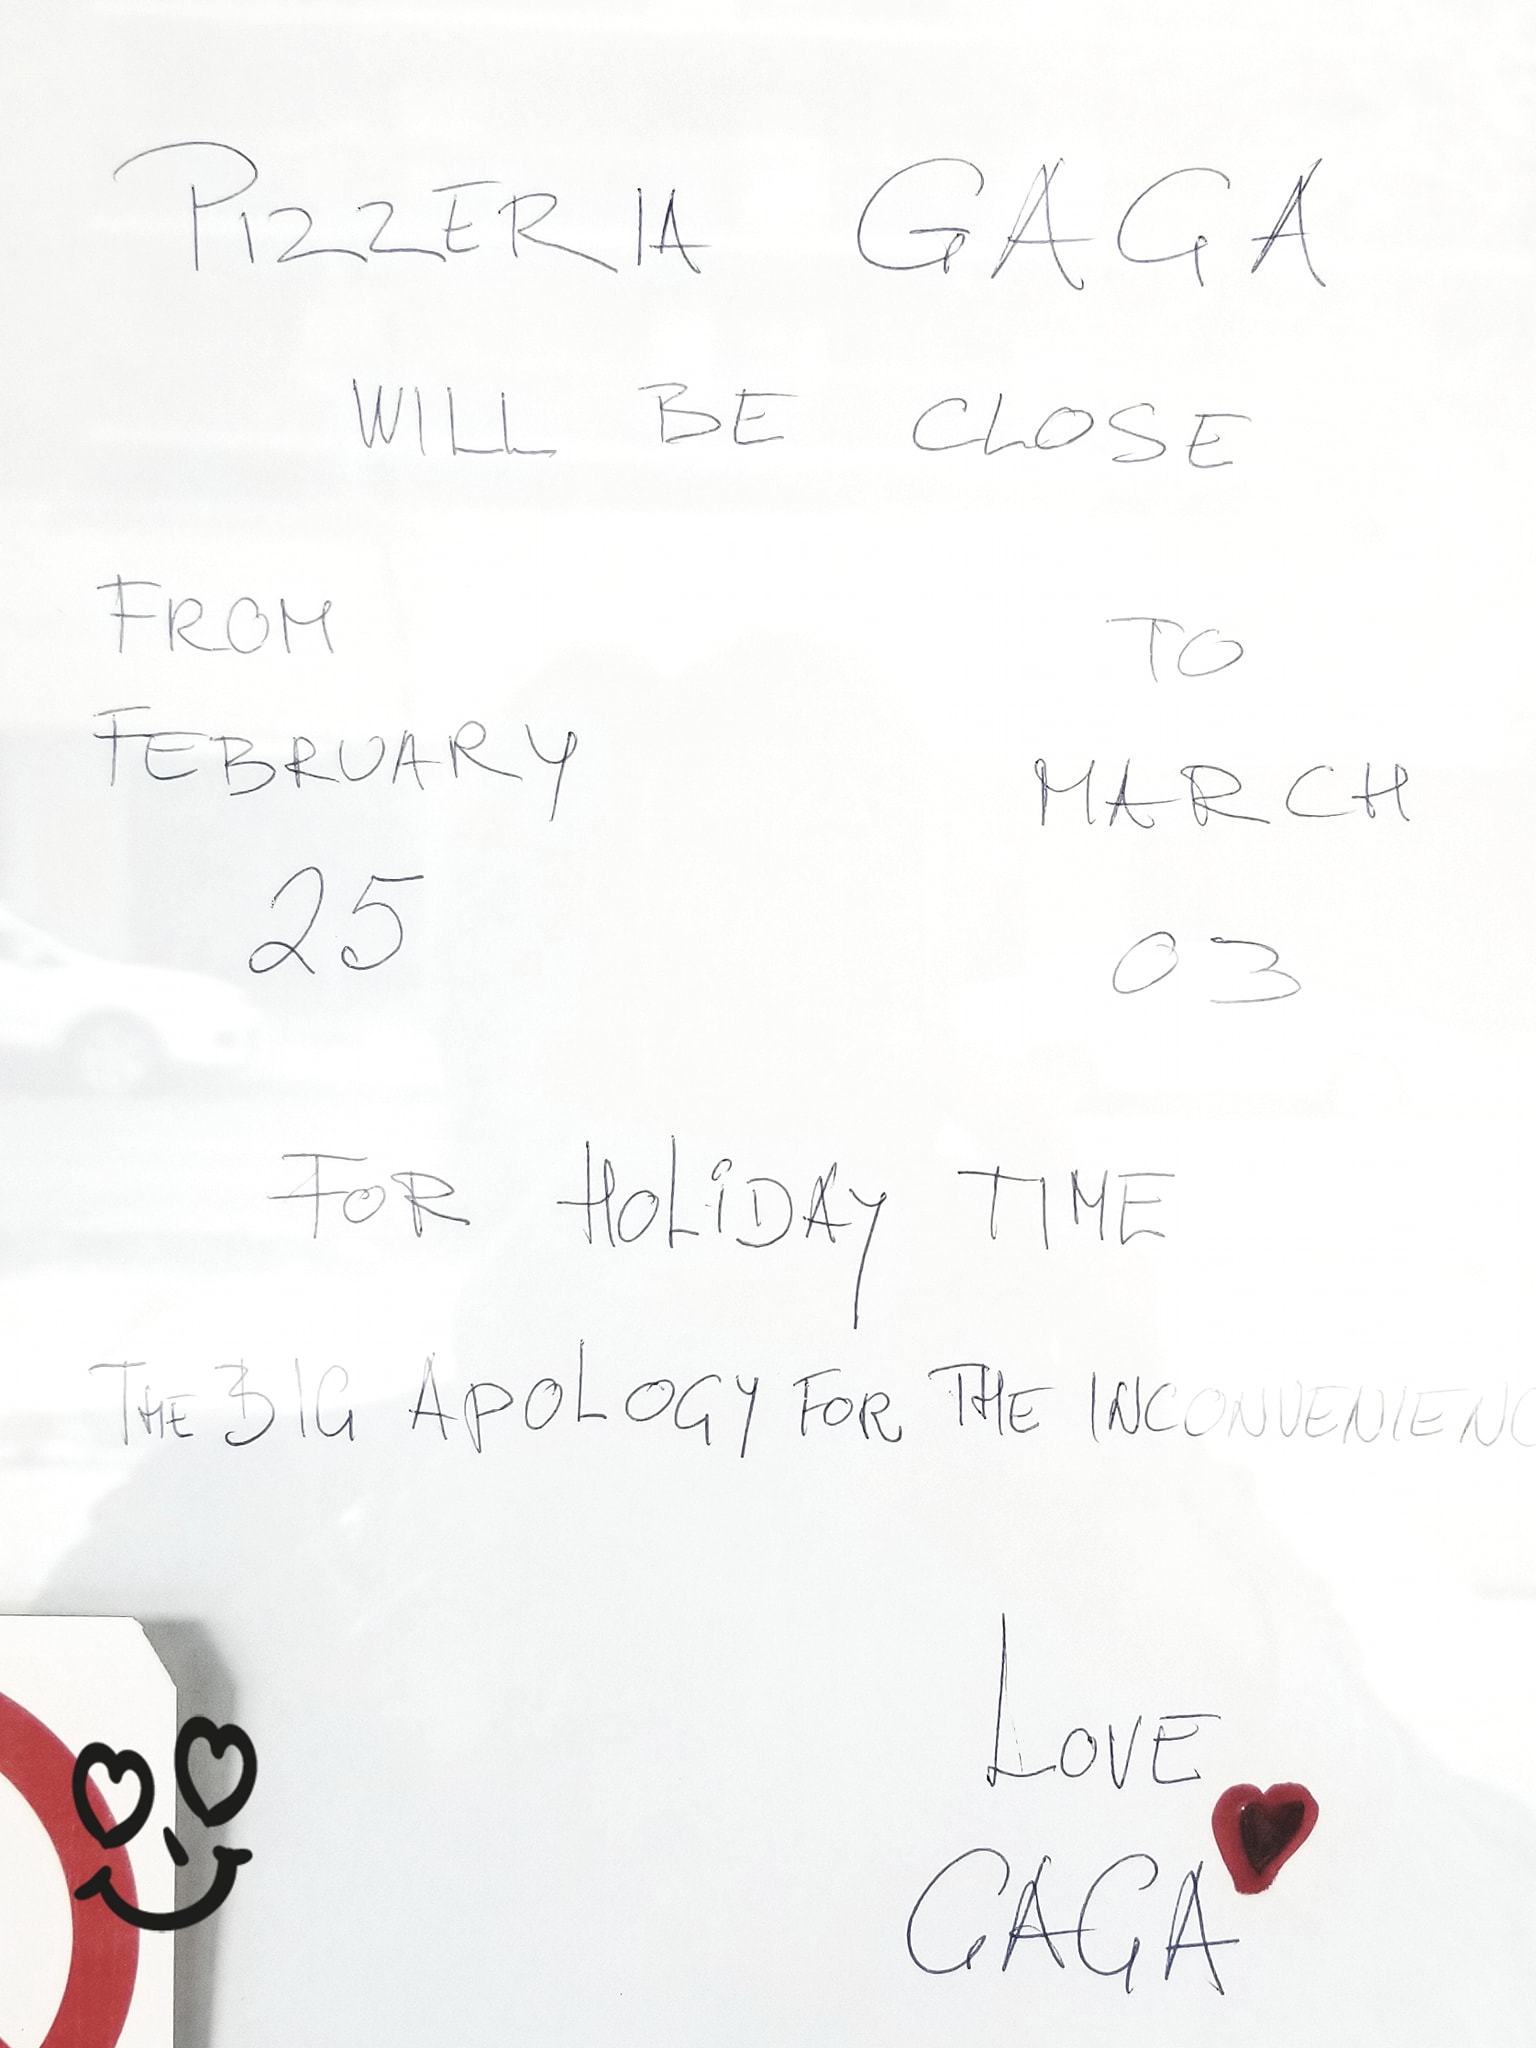 PIZZERIA GAGA
WILL BE CLOSE
FROM TO
FEBRUARY MARCH
25 03
FOR HOLiDAY TIME
THE BIG APOLOGY FOR THE INCONVENIENC
LOVE
GAGA